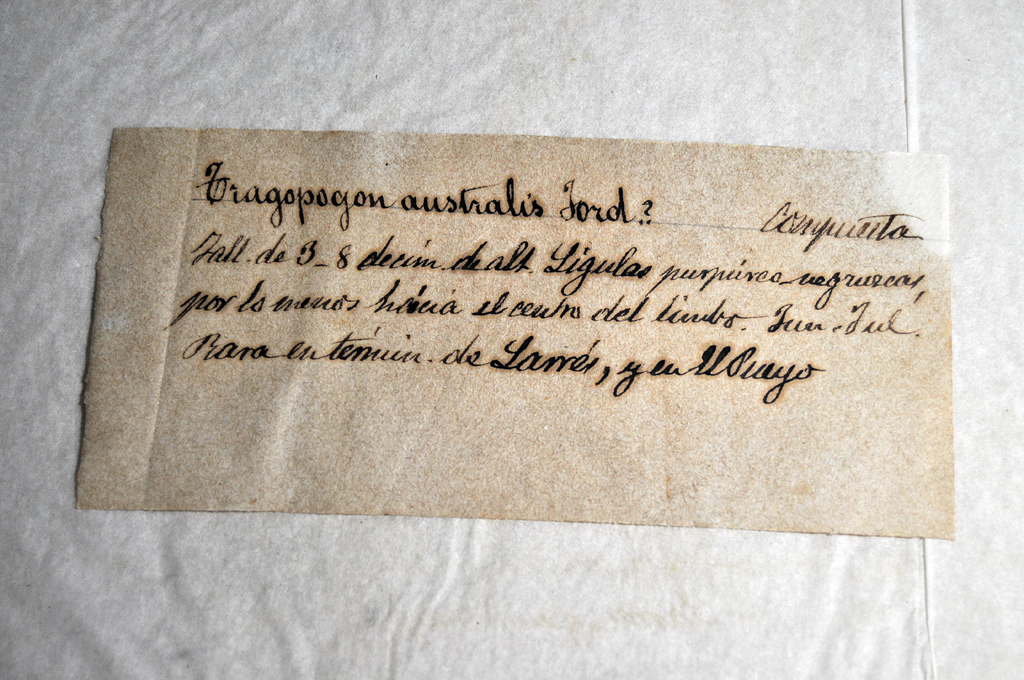 Tragopogon australis Jord.?
Compuesta
Tall. de 3-8 decím. de alt. Lígulas purpúreo-negruzcas,
por lo menos hácia el centro del limbo. Jun.-Jul.
Rara en términ. de Larrés, y en El Pueyo